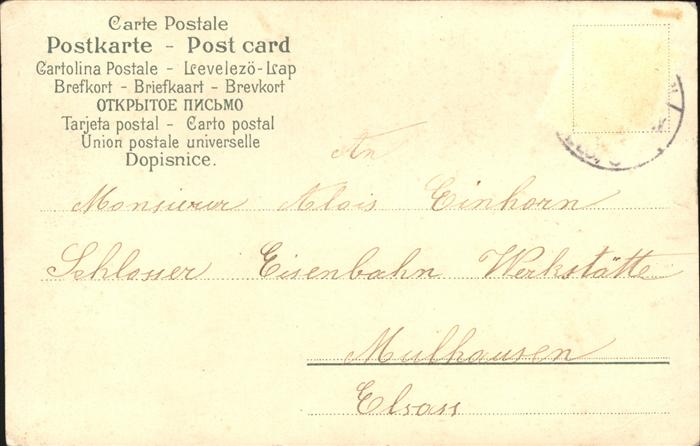 Carte Postale
Postkarte - Post card
Cartolina Postale - Levelezö-Lap
Brefkort - Briefkaart - Brevkort
ОТКРЫТОЕ ПИСЬМО
Tarjeta postal - Carto postal
Union postale universelle
Dopisnice.
An
Monsieur Alois Einhorn
Schlosser Eisenbahn Werkstätte
Mülhausen
Elsass